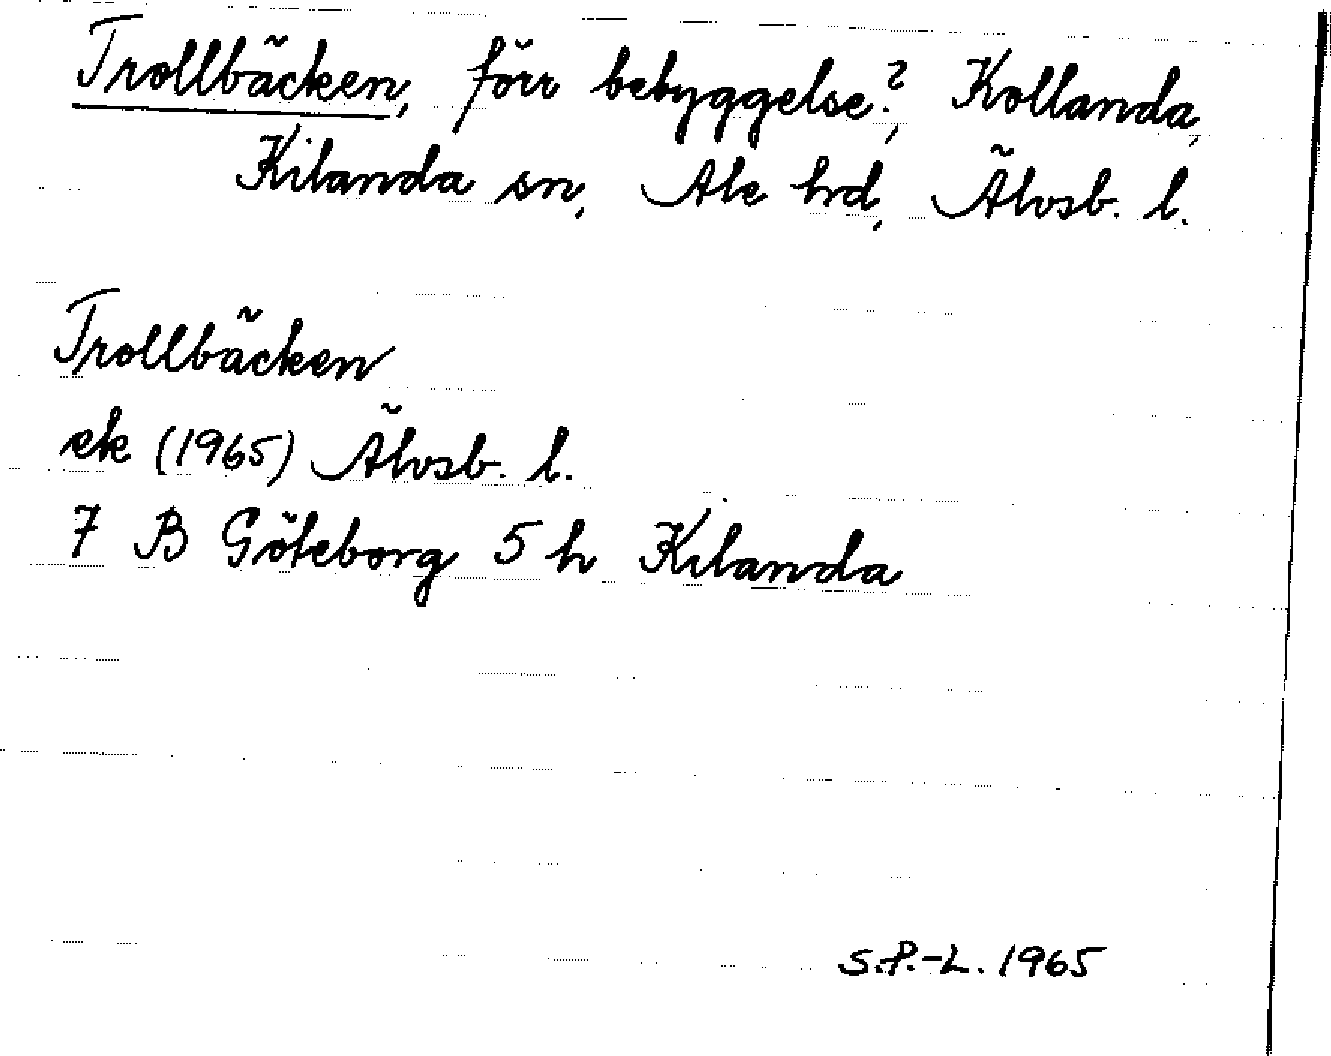 Trollbäcken, förr bebyggelse?, Kollanda,
Kilanda sn, Ale hrd, Älvsb. l.
Trollbäcken
ek (1965) Älvsb. l.
7 B Göteborg 5 h Kilanda
S.P.-L. 1965